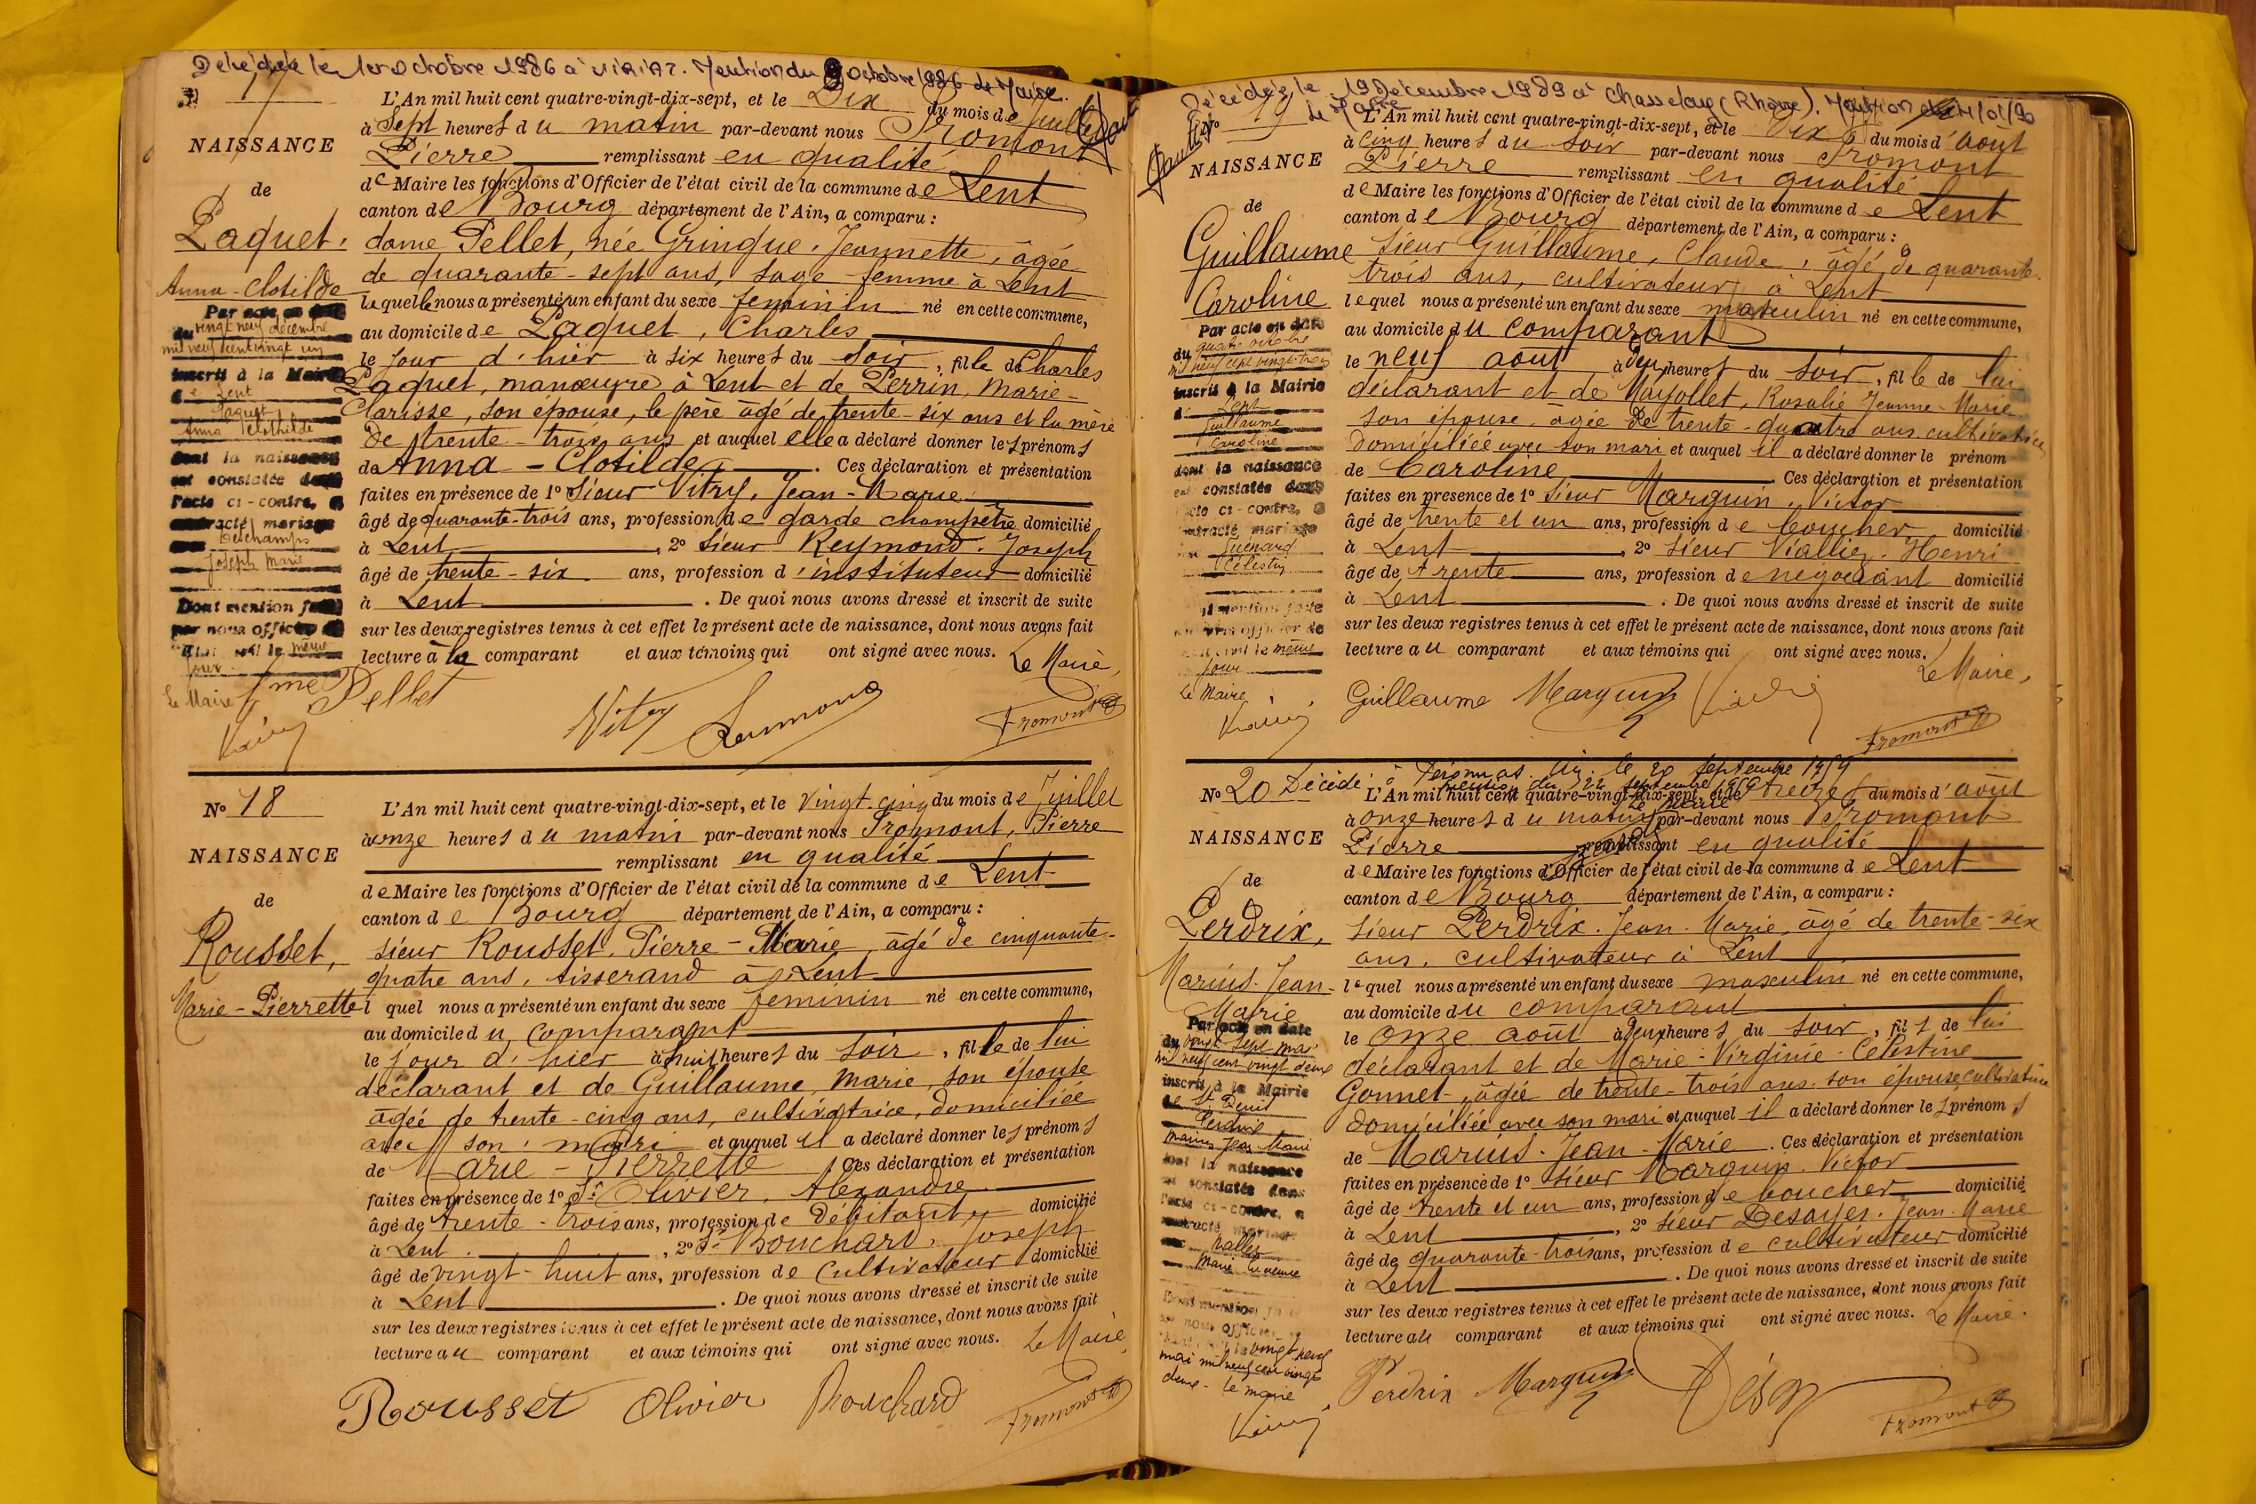 Décédée le 1er Octobre 1986 à VIRIAT. Mention du 3 Octobre 1986 Le Maire.
N° 17
NAISSANCE
de
Paquet,
Anna-Clotilde
Par acte en date
du vingt neuf décembre
mil neuf cent vingt un
inscrit à la Mairie
de Lent
Paquet
Anna Clothilde
dont la naissance
est constatée dans
l'acte ci-contre, a
contracté mariage
avec Deschamps
Joseph Marie
Dont mention faite
par nous officier de
l'état civil le même
jour
Le Maire
L'An mil huit cent quatre-vingt-dix-sept, et le Dix du mois de Juillet
à Sept heures du matin par-devant nous Fromont
Pierre remplissant en qualité
de Maire les fonctions d'Officier de l'état civil de la commune de Lent
canton de Bourg département de l'Ain, a comparu :
dame Pellet, née Gringue, Jeannette, âgée
de quarante-sept ans, sage-femme à Lent
laquelle nous a présenté un enfant du sexe féminin né en cette commune,
au domicile de Paquet, Charles
le jour d'hier à six heures du soir, fille de Charles
Paquet, manœuvre à Lent et de Perrin, Marie-
Clarisse, son épouse, le père âgé de trente-six ans et la mère
de trente-trois ans et auquel elle a déclaré donner les prénoms
de Anna-Clotilde. Ces déclaration et présentation
faites en présence de 1° sieur Vitry, Jean-Marie
âgé de quarante-trois ans, profession de garde champêtre domicilié
à Lent, 2° sieur Reymond, Joseph
âgé de trente-six ans, profession d'instituteur domicilié
à Lent. De quoi nous avons dressé et inscrit de suite
sur les deux registres tenus à cet effet le présent acte de naissance, dont nous avons fait
lecture à la comparant et aux témoins qui ont signé avec nous. Le Maire,
fme Pellet Vitry Reymond Fromont
N° 18
NAISSANCE
de
Rousset,
Marie-Pierrette
L'An mil huit cent quatre-vingt-dix-sept, et le vingt-cinq du mois de Juillet
à onze heures du matin par-devant nous Fromont, Pierre
remplissant en qualité
de Maire les fonctions d'Officier de l'état civil de la commune de Lent
canton de Bourg département de l'Ain, a comparu :
sieur Rousset, Pierre-Marie, âgé de cinquante-
quatre ans, tisserand à Lent
l quel nous a présenté un enfant du sexe féminin né en cette commune,
au domicile du comparant
le jour d'hier à huit heures du soir, fille de lui
déclarant et de Guillaume, Marie, son épouse
âgée de trente-cinq ans, cultivatrice, domiciliée
avec son mari et auquel il a déclaré donner les prénoms
de Marie-Pierrette. Ces déclaration et présentation
faites en présence de 1° Sr Olivier, Alexandre
âgé de trente-trois ans, profession de Débitant domicilié
à Lent, 2° Sr Bouchard, Joseph
âgé de vingt-huit ans, profession de cultivateur domicilié
à Lent. De quoi nous avons dressé et inscrit de suite
sur les deux registres tenus à cet effet le présent acte de naissance, dont nous avons fait
lecture au comparant et aux témoins qui ont signé avec nous. Le Maire,
Rousset Olivier Bouchard Fromont
Décédée le 19 Décembre 1989 à Chasselay (Rhône). Mention
Le Maire
N° 19
NAISSANCE
de
Guillaume
Caroline
Par acte en date
du quatre octobre
mil neuf cent vingt-trois
inscrit à la Mairie
de Lent
Guillaume
Caroline
dont la naissance
est constatée dans
l'acte ci-contre, a
contracté mariage
avec Guénard
Célestin
Dont mention faite
par nous officier de
l'état civil le même
jour
Le Maire,
L'An mil huit cent quatre-vingt-dix-sept, et le Dix du mois d'août
à cinq heures du soir par-devant nous Fromont
Pierre remplissant en qualité
de Maire les fonctions d'Officier de l'état civil de la commune de Lent
canton de Bourg département de l'Ain, a comparu :
sieur Guillaume, Claude, âgé de quarante-
trois ans, cultivateur à Lent
lequel nous a présenté un enfant du sexe masculin né en cette commune,
au domicile du comparant
le neuf août à deux heures du soir, fille de lui
déclarant et de Mayollet, Rosalie Jeanne-Marie
son épouse, âgée de trente-quatre ans cultivatrice
domiciliée avec son mari et auquel il a déclaré donner le prénom
de Caroline Ces déclaration et présentation
faites en présence de 1° sieur Marguin, Victor
âgé de trente et un ans, profession de boucher domicilié
à Lent, 2° sieur Viallier, Henri
âgé de trente ans, profession de négociant domicilié
à Lent. De quoi nous avons dressé et inscrit de suite
sur les deux registres tenus à cet effet le présent acte de naissance, dont nous avons fait
lecture au comparant et aux témoins qui ont signé avec nous.
Le Maire,
Guillaume Marguin Fromont
N° 20 Décédé à Péronnas le 20 septembre 1959
mention du 22 septembre 1959
Le Maire
NAISSANCE
de
Perdrix,
Marius-Jean-
Marie
Par acte en date
du vingt-sept mai
mil neuf cent vingt deux
inscrit à la Mairie
de St Denis
Perdrix
Marius Jean Marie
dont la naissance
est constatée dans
l'acte ci-contre, a
contracté mariage
avec
Marie
Dont mention faite
par nous officier de
l'état civil le vingt neuf
mai mil neuf cent vingt
deux - Le maire
L'An mil huit cent quatre-vingt-dix-sept, et le treize du mois d'août
à onze heures du matin par-devant nous Fromont
Pierre remplissant en qualité
de Maire les fonctions d'Officier de l'état civil de la commune de Lent
canton de Bourg département de l'Ain, a comparu :
sieur Perdrix, Jean-Marie, âgé de trente-six
ans, cultivateur à Lent
lequel nous a présenté un enfant du sexe masculin né en cette commune,
au domicile du comparant
le onze août à deux heures du soir, fils de lui
déclarant et de Marie-Virginie-Célestine
Gonnet, âgée de trente-trois ans, son épouse, cultivatrice
domiciliée avec son mari et auquel il a déclaré donner les prénoms
de Marius-Jean-Marie. Ces déclaration et présentation
faites en présence de 1° sieur Marguin, Victor
âgé de trente et un ans, profession de boucher domicilié
à Lent, 2° sieur Desayes, Jean-Marie
âgé de quarante-trois ans, profession de cultivateur domicilié
à Lent. De quoi nous avons dressé et inscrit de suite
sur les deux registres tenus à cet effet le présent acte de naissance, dont nous avons fait
lecture au comparant et aux témoins qui ont signé avec nous. Le Maire.
Perdrix Marguin Fromont